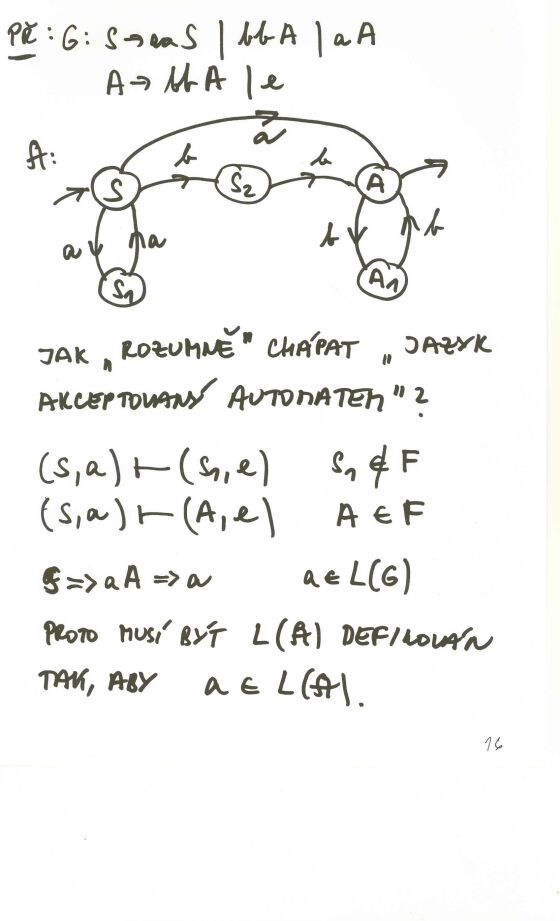 Př: G: S → aaS | bbA | aA
A → bbA | e
A:
a
b b
S S2 A
a a b b
S1 A1
JAK „ROZUMNĚ" CHÁPAT „JAZYK
AKCEPTOVANÝ AUTOMATEM"?
(S,a) ⊢ (S1,e) S1 ∉ F
(S,a) ⊢ (A,e) A ∈ F
S => aA => a a ∈ L(G)
PROTO MUSÍ BÝT L(A) DEFINOVÁN
TAK, ABY a ∈ L(A).
16